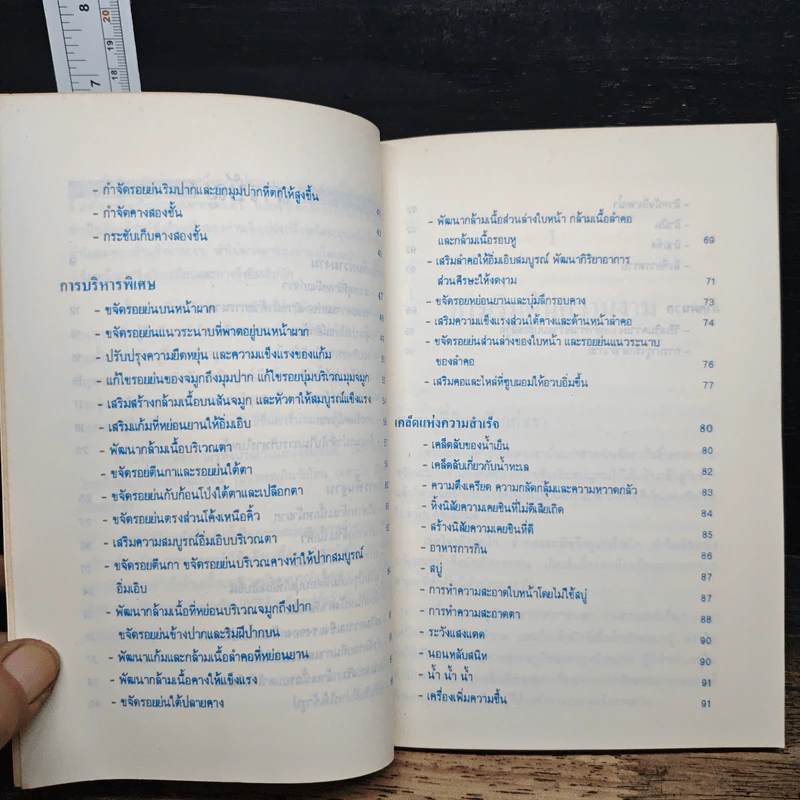 - กำจัดรอยย่นริมปากและยกมุมปากที่ตกให้สูงขึ้น
- กำจัดคางสองชั้น
- กระชับเก็บคางสองชั้น
การบริหารพิเศษ 47
- ขจัดรอยย่นบนหน้าผาก
- ขจัดรอยย่นแนวระนาบที่พาดอยู่บนหน้าผาก
- ปรับปรุงความยืดหยุ่น และความแข็งแรงของแก้ม
- แก้ไขรอยย่นของจมูกถึงมุมปาก แก้ไขรอยบุ๋มบริเวณมุมจมูก
- เสริมสร้างกล้ามเนื้อบนสันจมูก และหัวตาให้สมบูรณ์แข็งแรง
- เสริมแก้มที่หย่อนยานให้อิ่มเอิบ
- พัฒนากล้ามเนื้อบริเวณตา
- ขจัดรอยตีนกาและรอยย่นใต้ตา
- ขจัดรอยย่นกับก้อนโป่งใต้ตาและเปลือกตา
- ขจัดรอยย่นตรงส่วนโค้งเหนือคิ้ว
- เสริมความสมบูรณ์อิ่มเอิบบริเวณตา
- ขจัดรอยตีนกา ขจัดรอยย่นบริเวณคางทำให้ปากสมบูรณ์
อิ่มเอิบ
- พัฒนากล้ามเนื้อที่หย่อนบริเวณจมูกถึงปาก
ขจัดรอยย่นข้างปากและริมฝีปากบน
- พัฒนาแก้มและกล้ามเนื้อลำคอที่หย่อนยาน
- พัฒนากล้ามเนื้อคางให้แข็งแรง
- ขจัดรอยย่นใต้ปลายคาง
- พัฒนากล้ามเนื้อส่วนล่างใบหน้า กล้ามเนื้อลำคอ
และกล้ามเนื้อรอบหู 69
- เสริมลำคอให้อิ่มเอิบสมบูรณ์ พัฒนากิริยาอาการ
ส่วนศีรษะให้งดงาม 71
- ขจัดรอยหย่อนยานและบุ๋มลึกรอบคาง 73
- เสริมความแข็งแรงส่วนใต้คางและด้านหน้าลำคอ 74
- ขจัดรอยย่นส่วนล่างของใบหน้า และรอยย่นแนวระนาบ
ของลำคอ 76
- เสริมคอและไหล่ที่ซูบผอมให้อวบอิ่มขึ้น 77
เคล็ดแห่งความสำเร็จ 80
- เคล็ดลับของน้ำเย็น 80
- เคล็ดลับเกี่ยวกับน้ำทะเล 82
- ความตึงเครียด ความกลัดกลุ้มและความหวาดกลัว 83
- ทิ้งนิสัยความเคยชินที่ไม่ดีเสียเถิด 84
- สร้างนิสัยความเคยชินที่ดี 85
- อาหารการกิน 86
- สบู่ 87
- การทำความสะอาดใบหน้าโดยไม่ใช้สบู่ 87
- การทำความสะอาดตา 88
- ระวังแสงแดด 90
- นอนหลับสนิท 90
- น้ำ น้ำ น้ำ 91
- เครื่องเพิ่มความชื้น 91